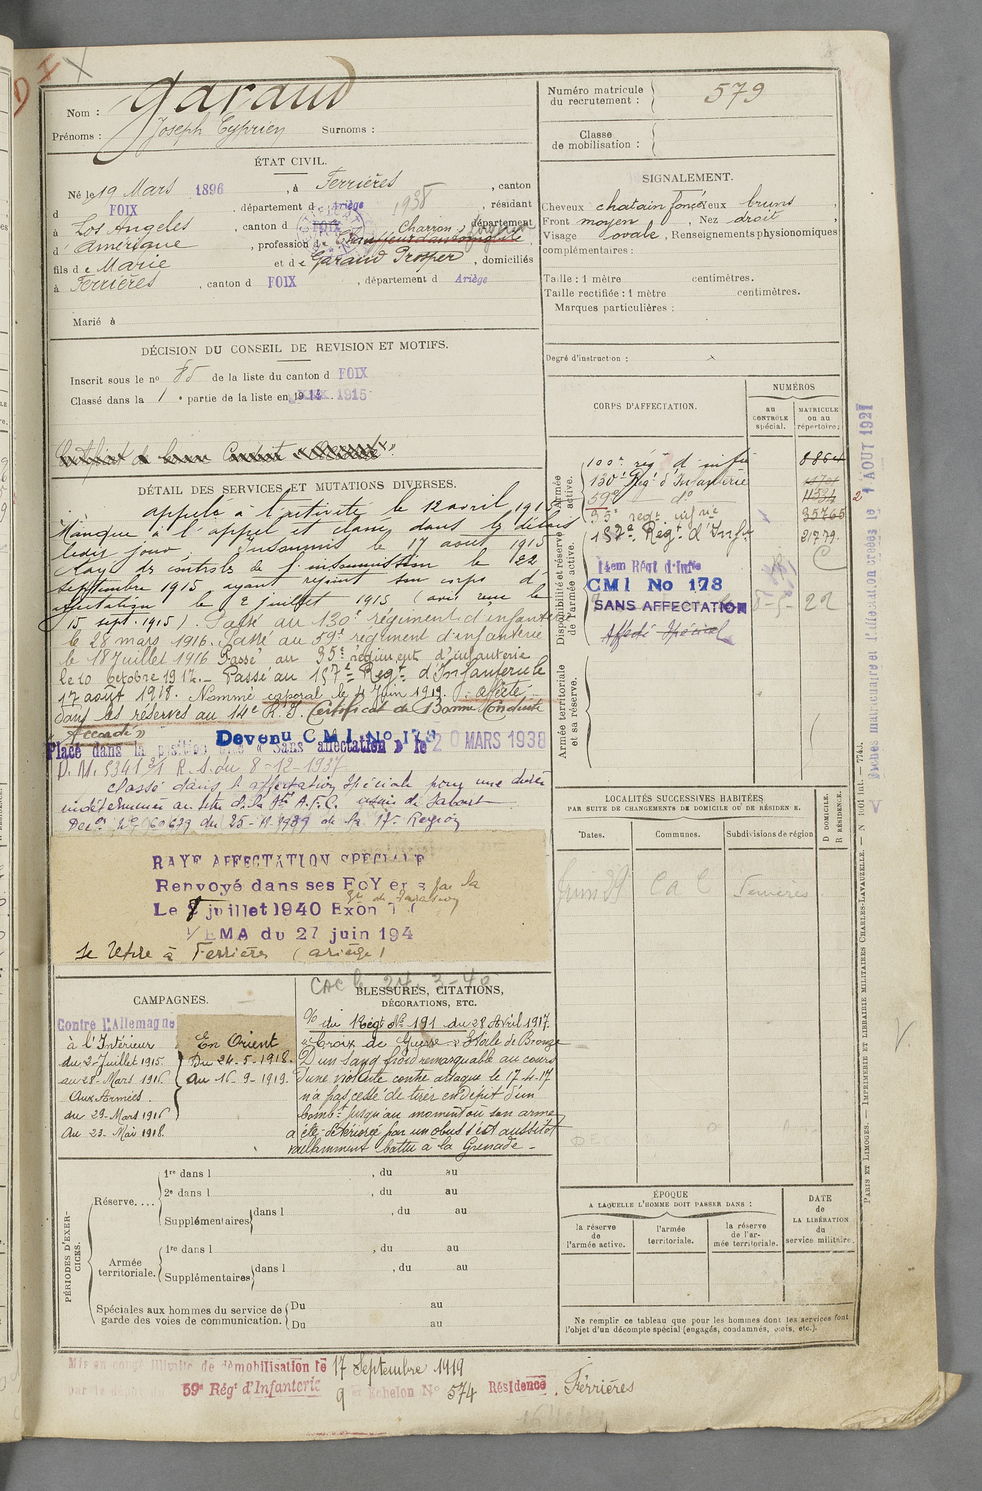 Nom : Garaud
Prénoms : Joseph Cyprien Surnoms :
Numéro matricule
du recrutement : 579
Classe
de mobilisation :
ÉTAT CIVIL.
Né le 19 Mars 1896, à Ferrières, canton
d FOIX, département d Ariège 1938, résidant
à Los Angeles, canton d FOIX Charron, département
d' Amérique, profession de Chauffeur d'automobile
fils de Marie et de Garaud Prosper, domiciliés
à Ferrières, canton d FOIX, département d Ariège
Marié à
SIGNALEMENT.
Cheveux chatain foncé, yeux bruns,
Front moyen, Nez droit,
Visage ovale, Renseignements physionomiques
complémentaires :
Taille : 1 mètre centimètres.
Taille rectifiée : 1 mètre centimètres.
Marques particulières :
Degré d'instruction :
DÉCISION DU CONSEIL DE REVISION ET MOTIFS.
Inscrit sous le nº 85 de la liste du canton d FOIX
Classé dans la 1e partie de la liste en 1915
Certificat de bonne Conduite "Accordé".
DÉTAIL DES SERVICES ET MUTATIONS DIVERSES.
appelé à l'activité le 12 avril 1915
Manque à l'appel et classé dans les délais
ledit jour. Insoumis le 17 août 1915
Rayé des contrôles de l'insoumission le 22
septembre 1915 ayant rejoint son corps d'
affectation le 2 juillet 1915 (avis reçu le
15 sept. 1915). Passé au 130e régiment d'infanterie
le 28 mars 1916. Passé au 59e régiment d'infanterie
le 18 Juillet 1916 Passé au 35e régiment d'infanterie
le 10 Octobre 1917. Passé au 157e Regt. d'Infanterie le
17 août 1918. Nommé caporal le 11 Juin 1919. affecté
dans les réserves au 14e R.I. Certificat de Bonne Conduite
"Accordé"
Devenu C M I. No 178
Placé dans la position dite "Sans affectation" le 20 MARS 1938
D. M. 5341 R.S. du 8-12-1937
Classé dans l'affectation Spéciale pour une durée
indéterminée au titre de la
du 25-11-1939 de la 17e Région
RAYE AFFECTATION SPECIALE
Renvoyé dans ses FOYers par la
Le juillet 1940
EMA du 27 juin 194
se retire à Ferrières (ariège)
CORPS D'AFFECTATION.
NUMÉROS
AU
CONTRÔLE
spécial.
MATRICULE
ou au
répertoire.
Armée
active.
100e rég. d'infie 8854
130e Régt d'Infanterie
59e do 11534
35e regt. infie 35765
Disponibilité et réserve
de l'armée active.
157e Regt. d'Inf. 21779
14em Régt d'Infie
CMI No 178
SANS AFFECTATION
Affecté Spécial
Armée territoriale
et sa réserve.
Fiches matriculaire et d'affectation créées le 1 AOUT 1927
LOCALITÉS SUCCESSIVES HABITÉES
PAR SUITE DE CHANGEMENTS DE DOMICILE OU DE RÉSIDENCE.
Dates. Communes. Subdivisions de région.
D DOMICILE.
R RÉSIDENCE.
CaC Ferrières
CAMPAGNES.
Contre l'Allemagne
à l'Intérieur
du 2 Juillet 1915
au 28 Mars 1916
Aux Armées.
du 29 Mars 1916
au 23 Mai 1918.
En Orient
Du 24-5-1918.
au 16-9-1919.
BLESSURES, CITATIONS,
DÉCORATIONS, ETC.
% du Régt No 191 du 28 Avril 1917.
"Croix de Guerre" Etoile de Bronze
D'un sang froid remarquable au cours
d'une violente contre attaque le 17-4-17
n'a pas cessé de tirer en dépit d'un
bombt jusqu'au moment où son arme
a été détériorée par un obus s'est aussitôt
vaillamment battu à la Grenade.
PÉRIODES D'EXERCICES.
Réserve....
1re dans l , du au
2e dans l , du au
Supplémentaires dans l , du au
Armée
territoriale.
1re dans l , du au
Supplémentaires dans l , du au
Spéciales aux hommes du service de
garde des voies de communication.
Du au
Du au
ÉPOQUE
A LAQUELLE L'HOMME DOIT PASSER DANS :
la réserve
de
l'armée active.
l'armée
territoriale.
la réserve
de l'ar-
mée territoriale.
DATE
de
LA LIBÉRATION
du
service militaire.
Ne remplir ce tableau que pour les hommes dont les services font
l'objet d'un décompte spécial (engagés, condamnés, omis, etc.).
PARIS ET LIMOGES. — IMPRIMERIE ET LIBRAIRIE MILITAIRES CHARLES-LAVAUZELLE.
Mis en congé illimité de démobilisation le 17 Septembre 1919
59e Régt d'Infanterie 9e Echelon No 574 Résidence. Ferrières